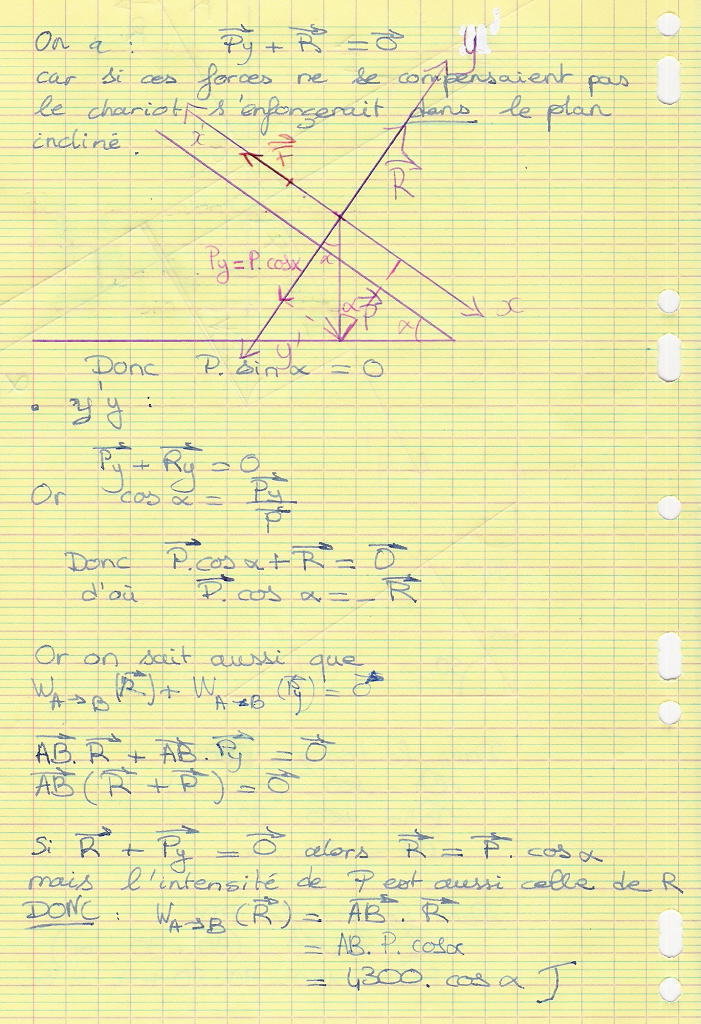 On a : Py + R = 0
car si ces forces ne se compensaient pas
le chariot s'enfoncerait dans le plan
incliné.
y
x'
F
R
Py = P. cosα
α
α
P
α
x
y'
Donc P. sin α = 0
• y'y :
Py + Ry = 0
Or cos α = Py / P
Donc P. cos α + R = 0
d'où P. cos α = - R
Or on sait aussi que
W A→B (R) + W A→B (Py) = 0
AB. R + AB. Py = 0
AB ( R + P ) = 0
Si R + Py = 0 alors R = P. cos α
mais l'intensité de P est aussi celle de R
DONC : W A→B (R) = AB . R
= AB. P. cosα
= 4300. cos α J